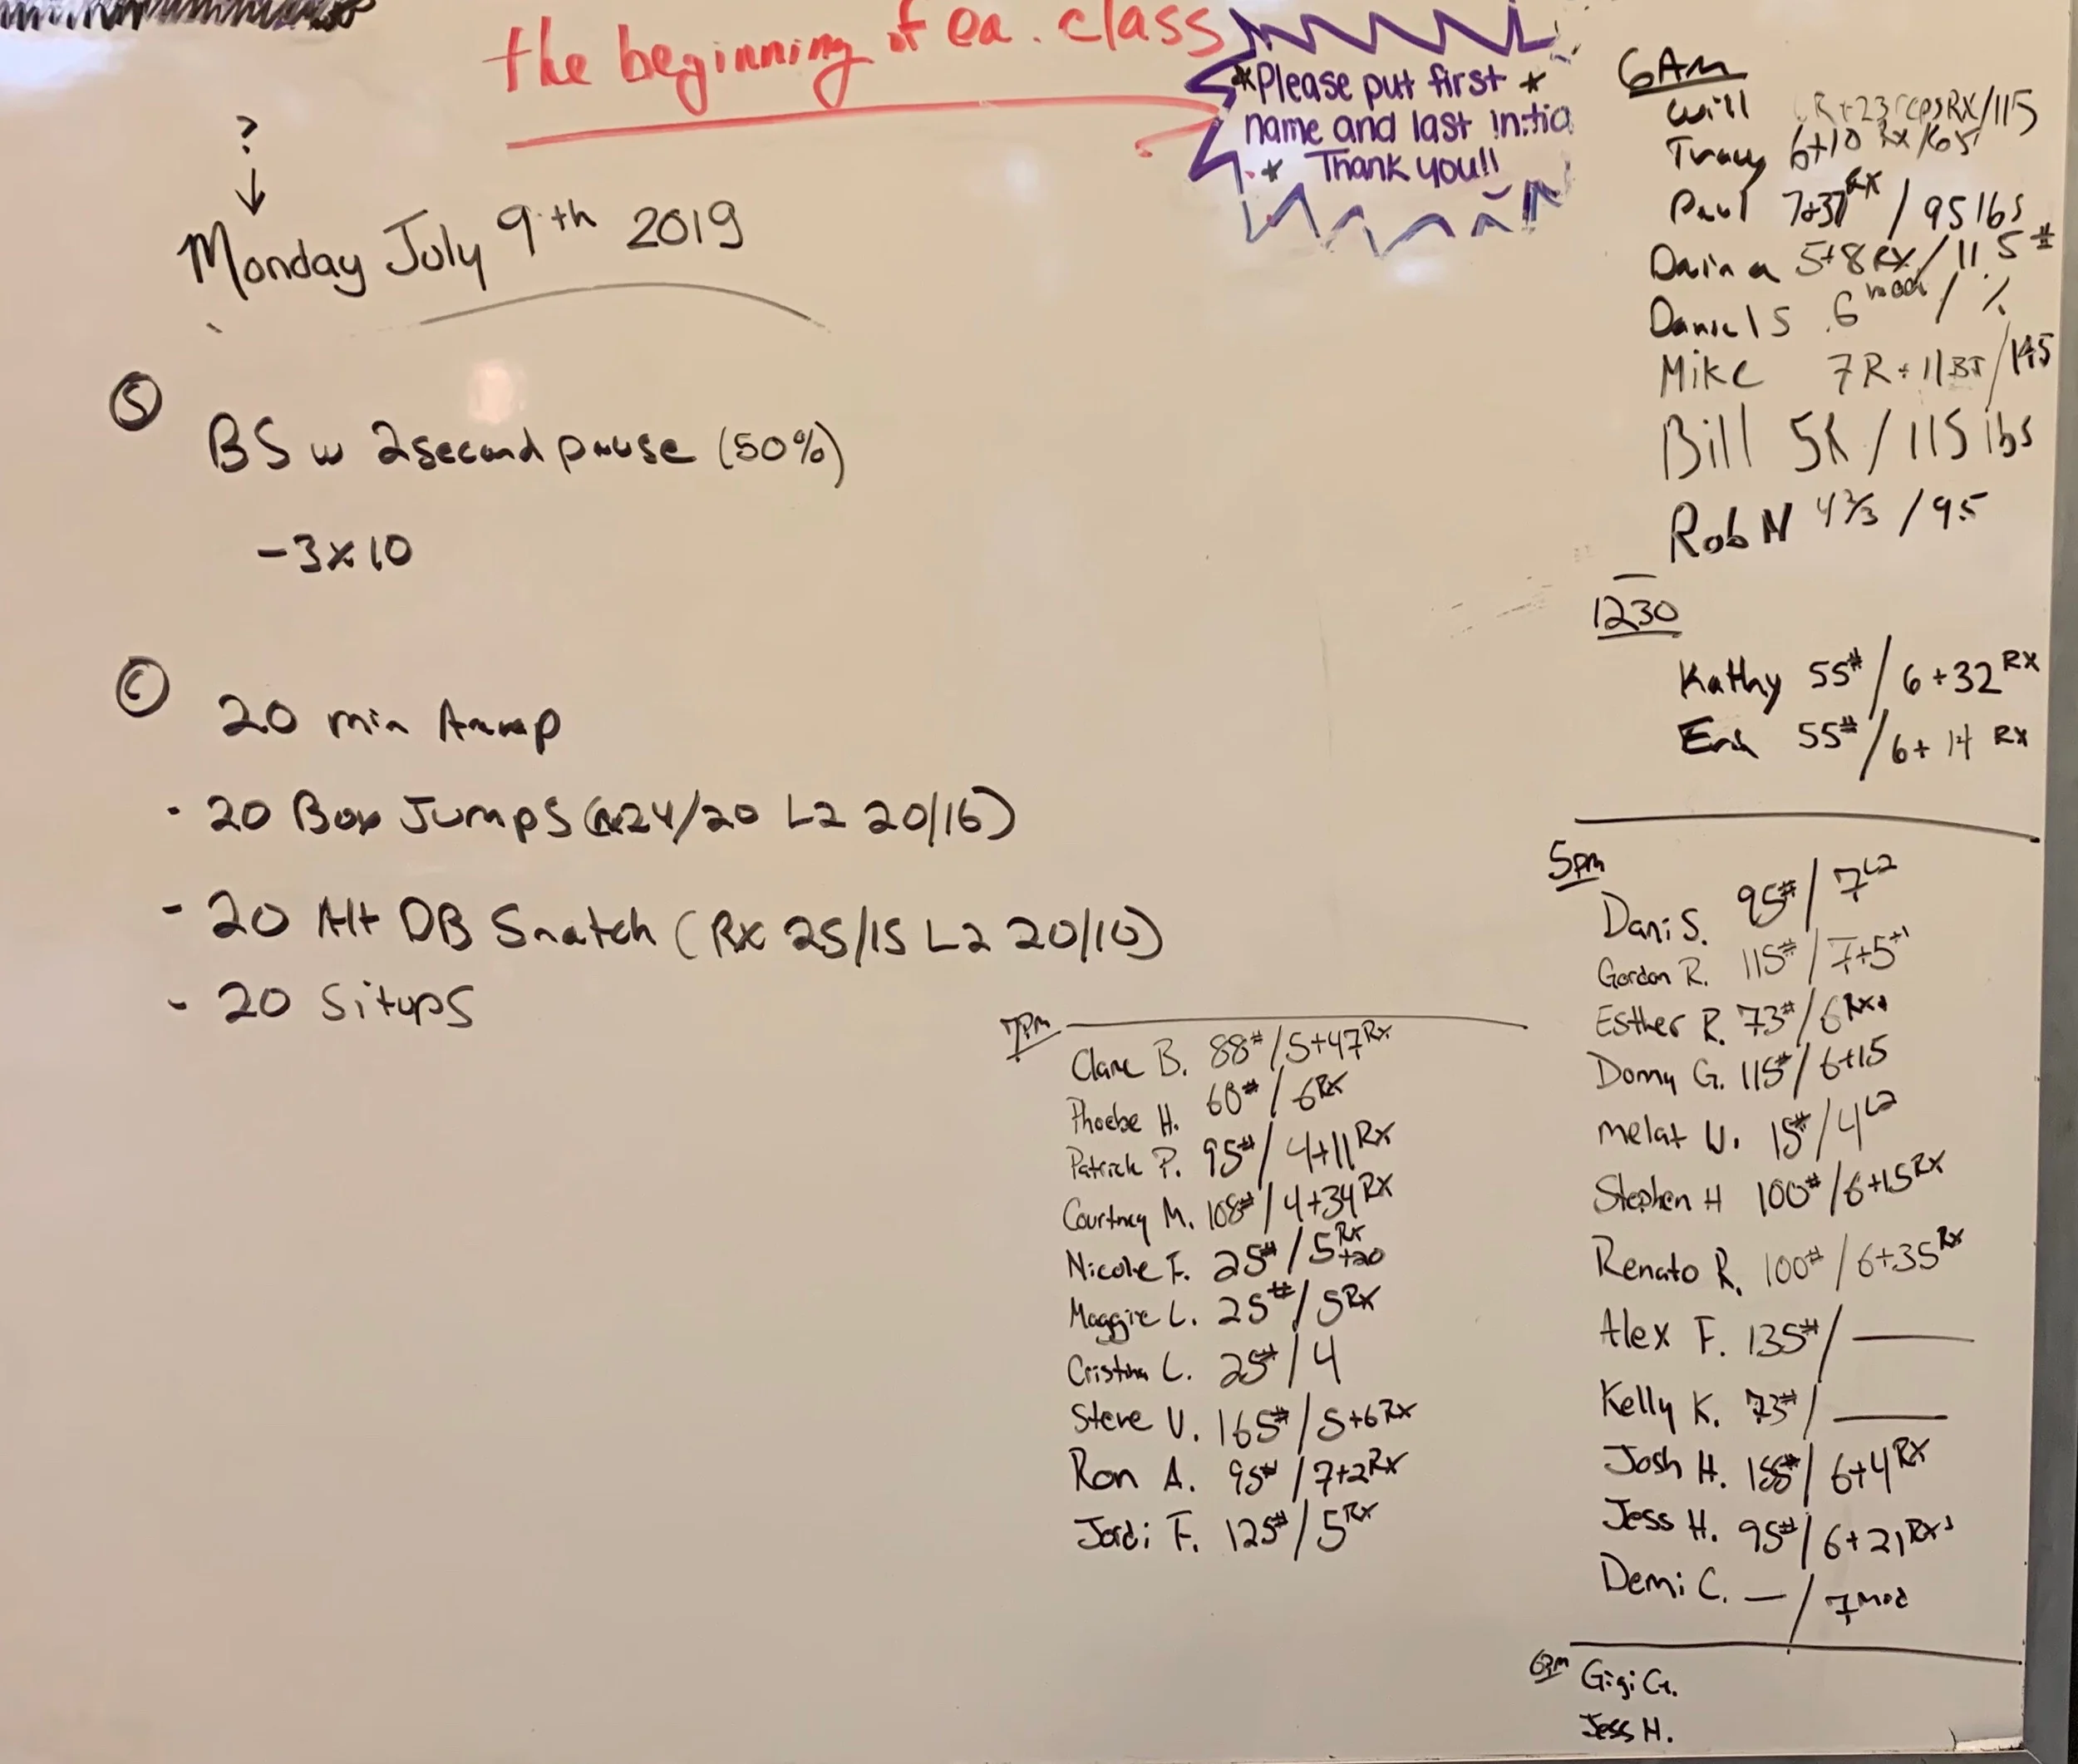 the beginning of ea. class
*Please put first *
name and last initia
* Thank you!!
?
Monday July 9th 2019
S
BS w 2 second pause (50%)
- 3x10
C
20 min Amrap
- 20 Box Jumps (Rx 24/20 L2 20/16)
- 20 Alt DB Snatch (Rx 25/15 L2 20/10)
- 20 Situps
6AM
Will R+23 reps RX/115
Tracy 6+10 Rx/65
Paul 7+37 RX / 95 lbs
Daina 5+8 RX / 115 #
Daniel S 6 mod / %
Mike 7R + 11BJ / 145
Bill 5R / 115 lbs
Rob N 4 2/3 / 95
1230
Kathy 55# / 6+32 RX
55# / 6+14 RX
5pm
Dani S. 95# / 7 L2
Gordon R. 115# / 7+5
Esther R. 73# / 6 Rx+
Donny G. 115# / 6+15
Melat W. 15# / 4 L2
Stephen H 100# / 6+15 RX
Renato R. 100# / 6+35 Rx
Alex F. 135# / —
Kelly K. 73# / —
Josh H. 155# / 6+4 RX
Jess H. 95# / 6+21 RX+
Demi C. — / 7 Mod
6pm Gigi G.
Jess H.
7pm
Clare B. 88# / 5+47 Rx
Phoebe H. 68# / 6 RX
Patrick P. 95# / 4+11 RX
Courtney M. 108# / 4+34 RX
Nicole F. 25# / 5 Rx +20
Maggie L. 25# / 5 RX
Cristina L. 25# / 4
Steve V. 165# / 5+6 RX
Ron A. 95# / 7+2 RX
Jordi F. 125# / 5 RX